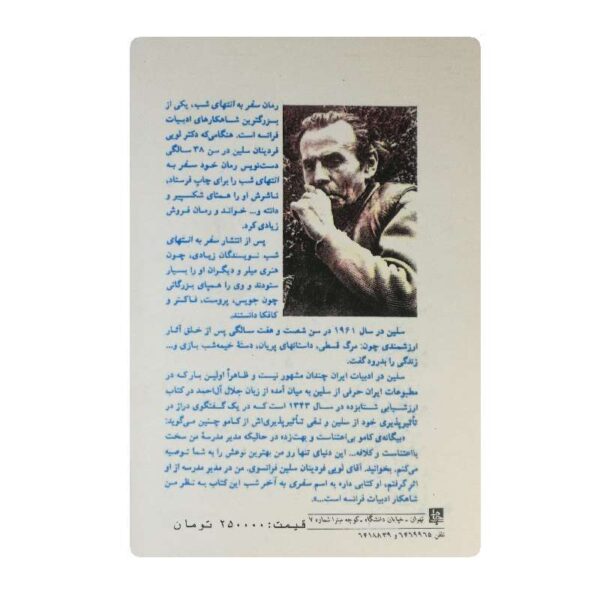 رمان سفر به انتهای شب، یکی از
بزرگترین شاهکارهای ادبیات
فرانسه است. هنگامی‌که دکتر لویی
فردینان سلین در سن ۳۸ سالگی
دست‌نویس رمان خود سفر به
انتهای شب را برای چاپ فرستاد،
ناشرش او را همتای شکسپیر و
دانته و... خواند و رمان فروش
زیادی کرد.
پس از انتشار سفر به انتهای
شب نویسندگان زیادی، چون
هنری میلر و دیگران او را بسیار
ستودند و وی را همپای بزرگانی
چون جویس، پروست، فاکنر و
کافکا دانستند.
سلین در سال ۱۹۶۱ در سن شصت و هفت سالگی پس از خلق آثار
ارزشمندی چون: مرگ قسطی، داستانهای پریان، دستهٔ خیمه‌شب بازی و...
زندگی را بدرود گفت.
سلین در ادبیات ایران چندان مشهور نیست و ظاهراً اولین بار که در
مطبوعات ایران حرفی از سلین به میان آمده از زبان جلال آل‌احمد در کتاب
ارزشیابی شتابزده در سال ۱۳۴۳ است که در یک گفتگوی دراز در
تأثیرپذیری خود از سلین و نفی تأثیرپذیری‌اش از کامو چنین می‌گوید:
«بیگانه‌ی کامو بی‌اعتناست و بهت‌زده در حالیکه مدیر مدرسهٔ من سخت
بااعتناست و کلافه... این دنیای تنها رو من بهترین نوعش را به شما توصیه
می‌کنم، بخوانید. آقای لویی فردینان سلین فرانسوی. من در مدیر مدرسه از او
اثر گرفتم، او کتابی داره به اسم سفری به آخر شب این کتاب به نظر من
شاهکار ادبیات فرانسه است...».
تهران - خیابان دانشگاه - کوچه میترا شماره ۷
قیمت: ۲۵۰۰۰۰ تومان
تلفن ۶۴۶۹۹۶۵ و ۶۴۱۸۸۳۹